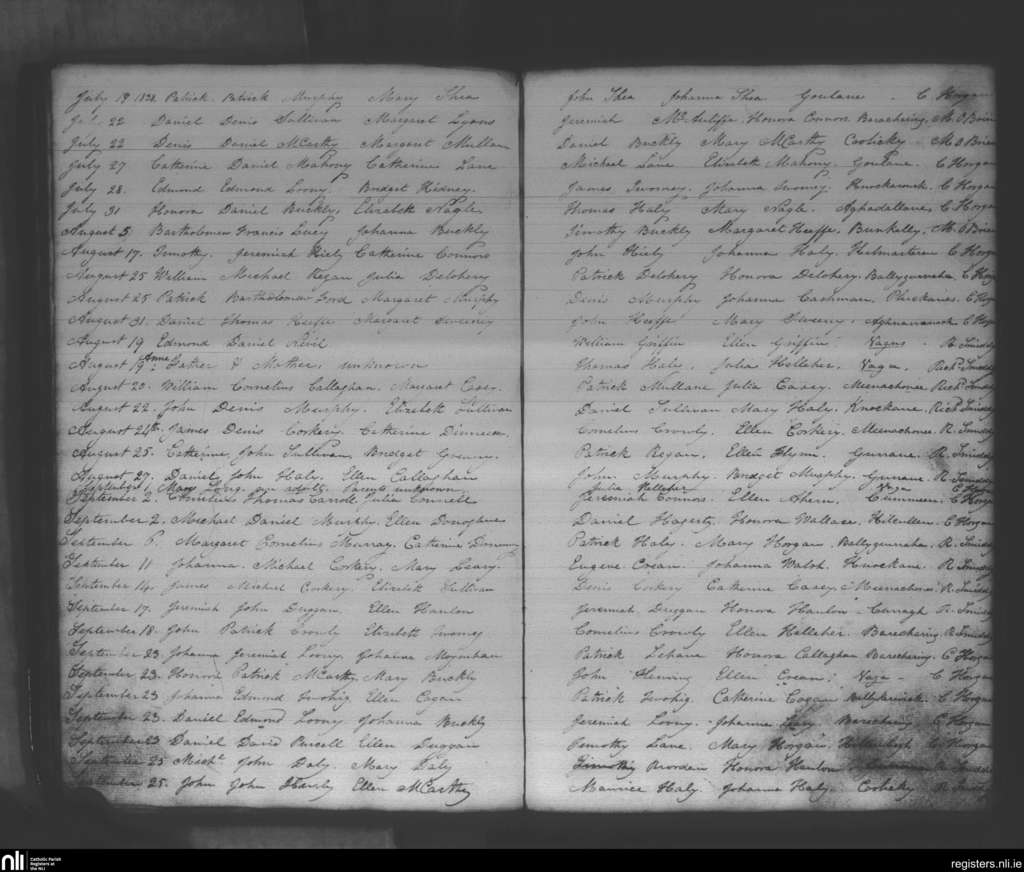 July 19 1828 Patrick Patrick Murphy Mary Shea John Shea Johanna Shea Goulane C Horgan
July 22 Daniel Denis Sullivan Margaret Lyons Jeremiah McAuliffe Honora Connors Barachering M O Brien
July 22 Denis Daniel McCarthy Margaret Mullane Daniel Buckly Mary McCarthy Coolicky M O Brien
July 27 Catherine Daniel Mahony Catherine Lane Michael Lane Elizabeth Mahony Goulane C Horgan
July 28 Edmond Edmond Loony Bridget Hidney James Twomey Johanna Twomey C Horgan
July 31 Honora Daniel Buckly Elizabeth Nagle Thomas Haly Mary Nagle Aghadallane C Horgan
August 5 Bartholomew Francis Lucy Johanna Buckly Timothy Buckly Margaret Keeffe M O Brien
August 17 Timothy Jeremiah Riely Catherine Connors John Riely Johanna Haly C Horgan
August 25 William Michael Regan Julia Delohery Patrick Delohery Honora Delohery Ballygirriha C Horgan
August 25 Patrick Bartholomew Ford Margaret Murphy Denis Murphy Johanna Cashman C Horgan
August 31 Daniel Thomas Keeffe Margaret Sweeney John Keeffe Mary Sweeny C Horgan
August 19 Edmond Daniel Nevil William Griffin Ellen Griffin Vagus R Smiddy
August 19 Anne Father & Mother unknown Thomas Haly Julia Kelleher Vagu Richd Smiddy
August 20 William Cornelius Callaghan Margaret Patrick Mullane Julia Casey Meenachonee Richd Smiddy
August 22 John Denis Murphy Elizabeth Sullivan Daniel Sullivan Mary Haly Knockane Richd Smiddy
August 24th James Denis Corkery Catherine Dinneen Cornelius Crowly Ellen Corkery Meenachonee R. Smiddy
August 25 Catherine John Sullivan Bridget Patrick Regan Ellen Flynn Gurrane R. Smiddy
August 27 Daniel John Haly Ellen Callaghan John Murphy Bridget Murphy Gurrane R. Smiddy
September 1 Mary Long an adult Parents unknown Julia Kelleher Vagu C Horgan
September 2 Cornelius Thomas Carroll Julia Connell Jeremiah Connors Ellen Ahern C Horgan
September 2 Michael Daniel Murphy Ellen Donoghue Daniel Hagerty Honora Wallace Kilcullen C Horgan
September Margaret Cornelius Murray Catherine Patrick Haly Mary Horgan Ballygirriha R. Smiddy
September 11 Johanna Michael Corkery Mary Leary Eugene Crean Johanna Walsh Knockane R Smiddy
September 14 James Michael Corkery Elizabeth Sullivan Denis Corkery Catherine Casey Meenachonee R. Smiddy
September 17 Jeremiah John Duggan Ellen Hanlon Jeremiah Duggan Honora Hanlon Carragh R. Smiddy
September 18 John Patrick Crowly Elizabeth Twomey Cornelius Crowly Ellen Kelleher Barachering R. Smiddy
September 23 Johanna Jeremiah Loony Johanna Moynihan Patrick Lehane Honora Callaghan Barachering C Horgan
September 23 Honora Patrick McCarthy Mary Buckly John Fleming Ellen Crean Vagu C Horgan
September 23 Johanna Edmund Twohig Ellen Cogan Patrick Twohig Catherine Cogan C Horgan
September 23 Daniel Edmond Loony Johanna Buckly Jeremiah Loony Johanna Barachering C Horgan
September 23 Daniel David Purcell Ellen Duggan Timothy Lane Mary Horgan C Horgan
September 25 Michl John Daly Mary Daly Timothy Honora Hanlon R Smiddy
September 25 John John Ellen McCarthy Maurice Haly Johanna Haly R Smiddy
nli Catholic Parish
Registers at
the NLI
registers.nli.ie